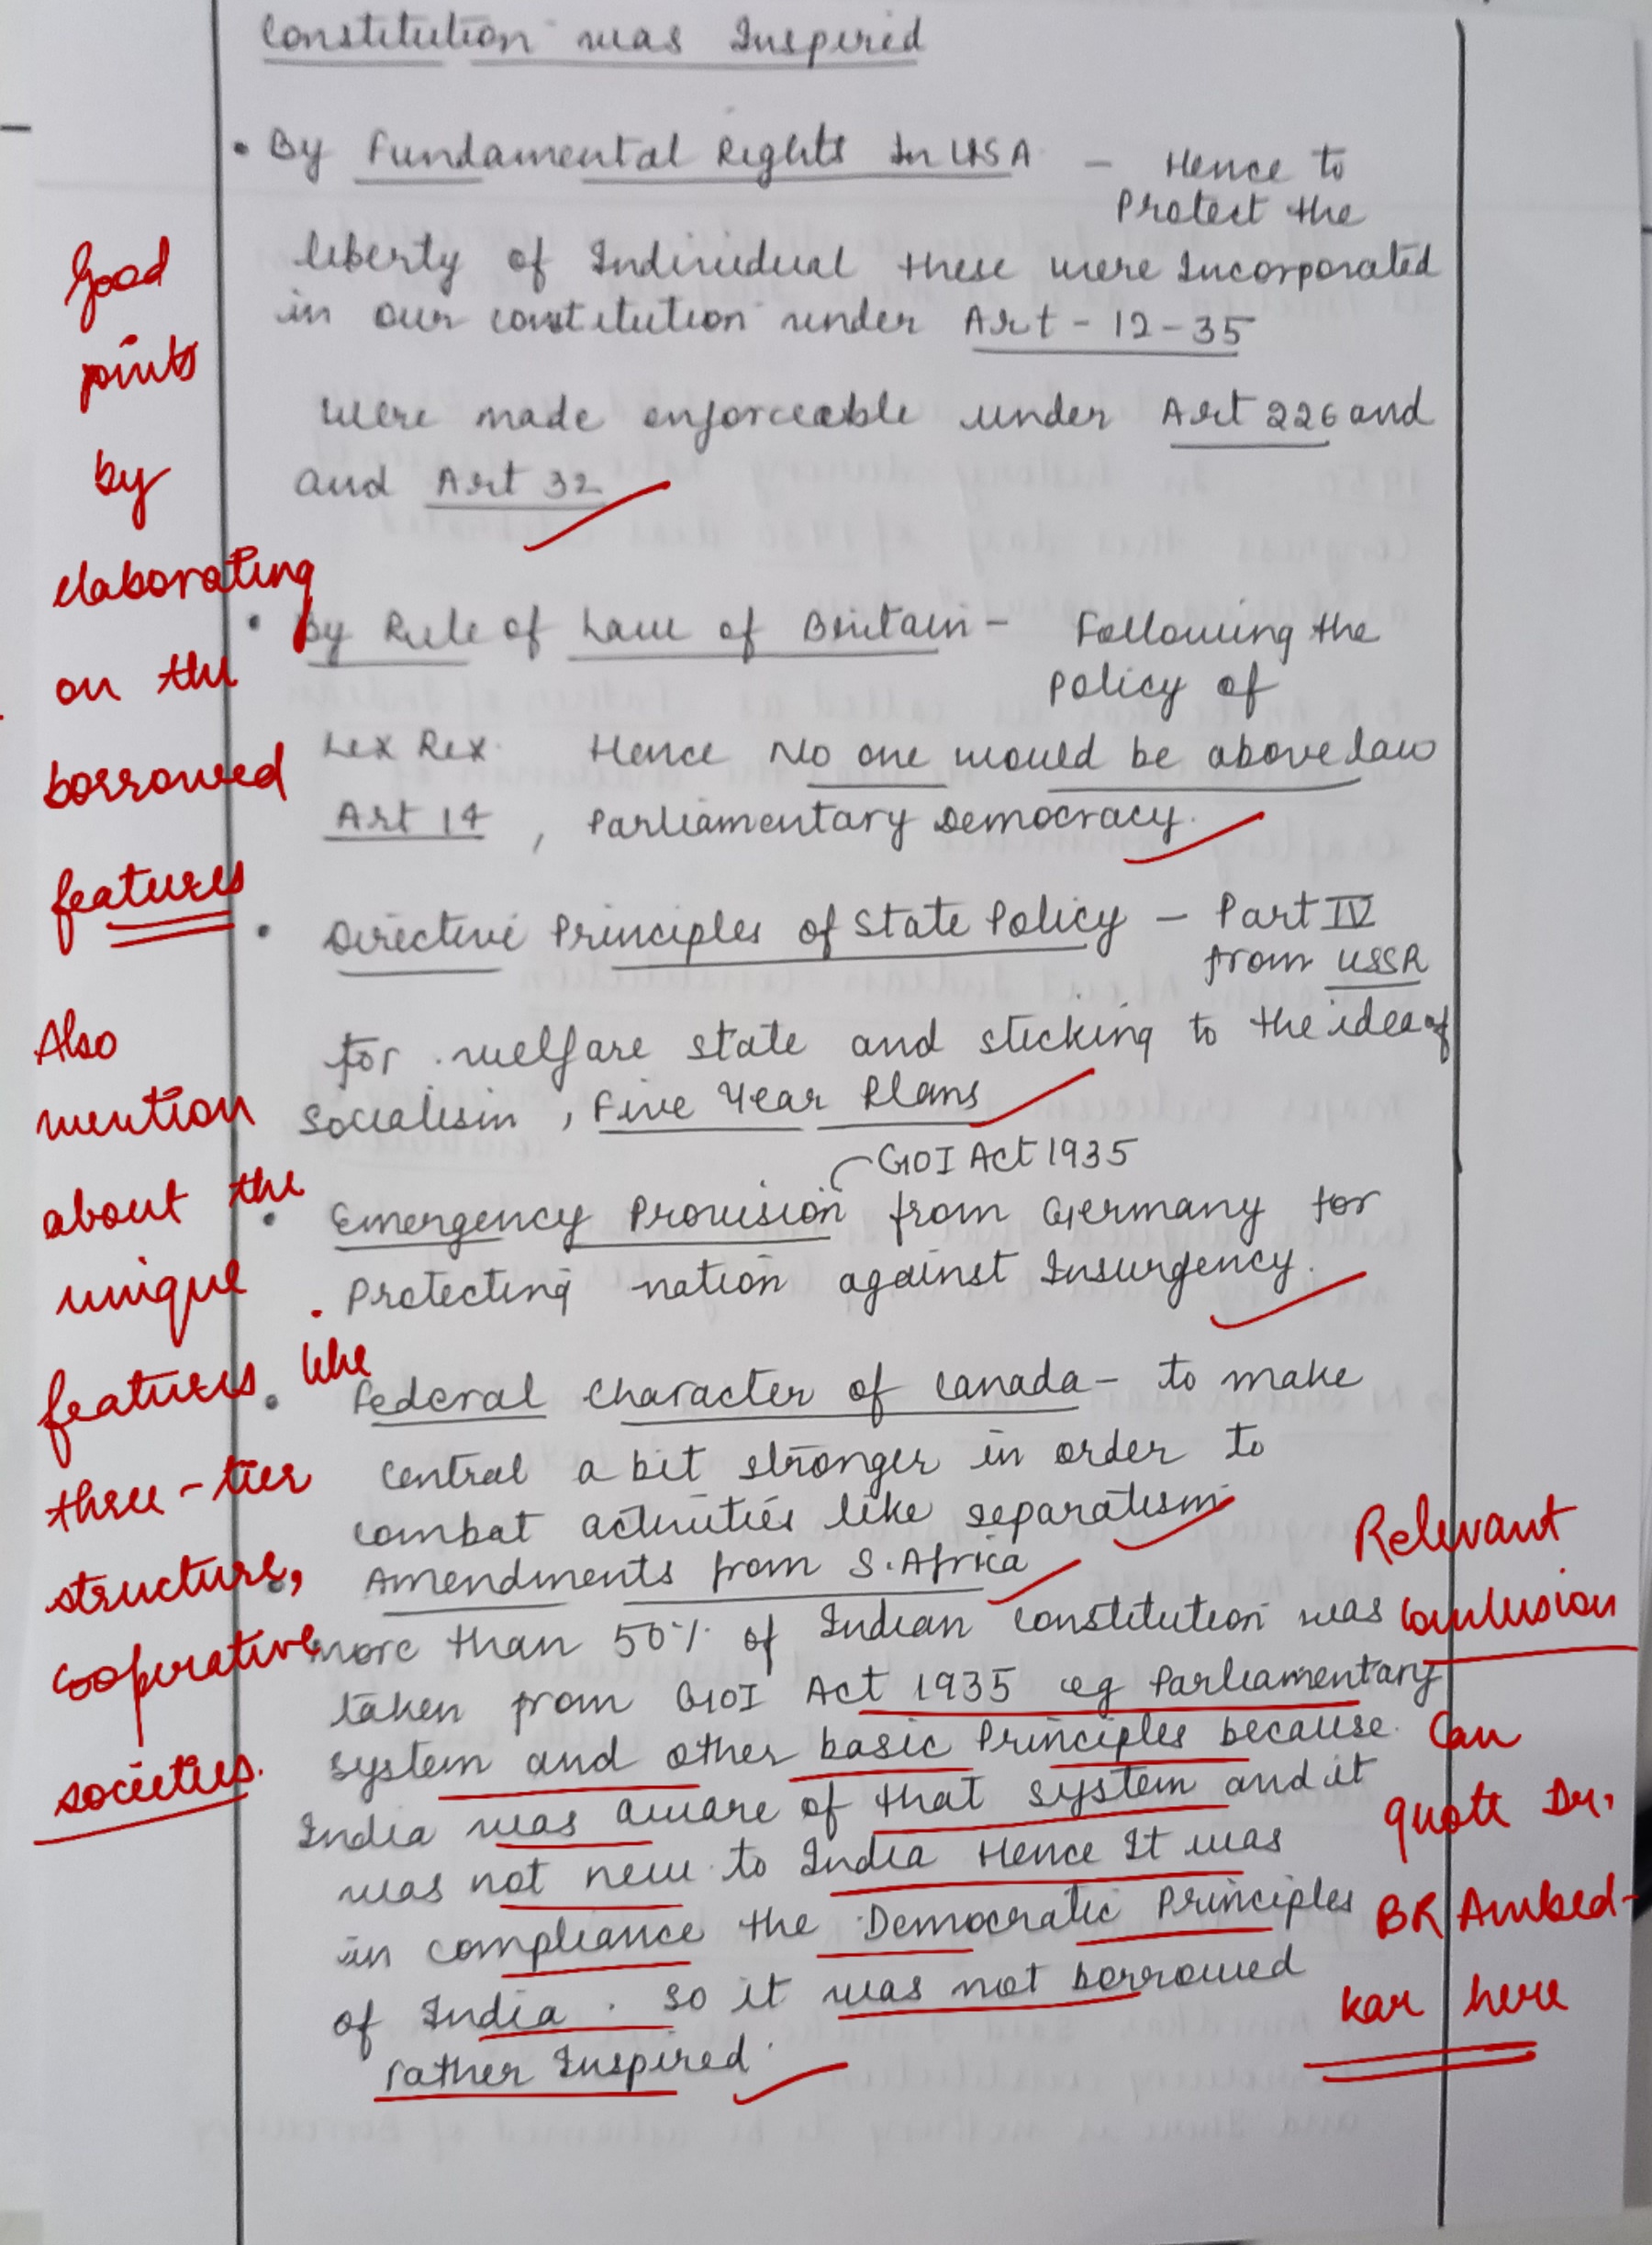 Constitution was Inspired
• By Fundamental Rights In USA – Hence to
Protect the
liberty of Individual these were Incorporated
in our constitution under Art - 12-35
were made enforceable under Art 226 and
and Art 32
• By Rule of Law of Britain – Following the
Policy of
Lex Rex. Hence No one would be above law
Art 14, Parliamentary Democracy.
• Directive Principles of State Policy – Part IV
from USSR
for welfare state and sticking to the idea of
Socialism, Five Year Plans
GOI Act 1935
• Emergency Provision from Germany for
Protecting nation against Insurgency.
• Federal Character of Canada – to make
central a bit stronger in order to
combat activities like separatism
• Amendments from S. Africa
more than 50% of Indian constitution was
taken from GOI Act 1935 eg Parliamentary
system and other basic Principles because
India was aware of that system and it
was not new to India Hence It was
in compliance the Democratic Principles
of India. So it was not borrowed
rather Inspired.
Good
points
by
elaborating
on the
borrowed
features
Also
mention
about the
unique
features like
three-tier
structure,
cooperative
societies.
Relevant
Conclusion
Can
quote Dr.
BR Ambed-
kar here